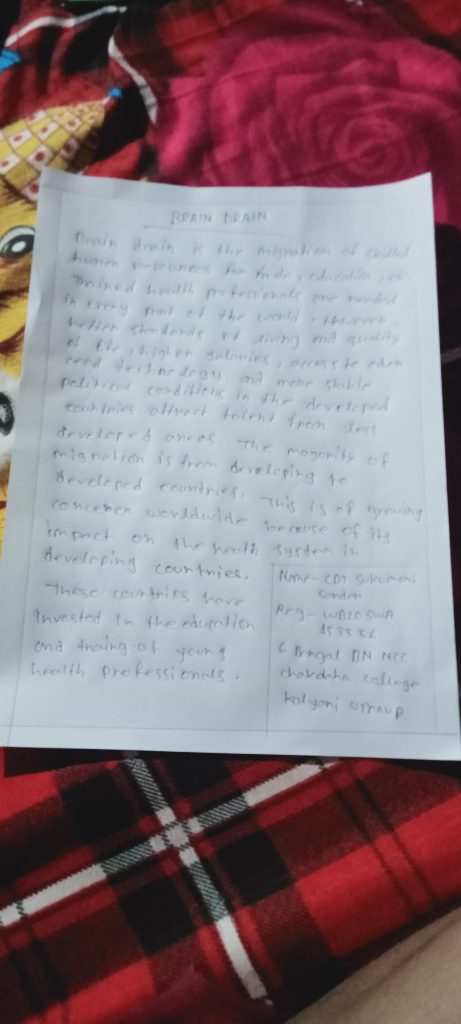 BRAIN DRAIN
Brain drain is the migration of skilled
human resources for trade, education, etc.
Trained health professionals are needed
in every part of the world. However,
better standards of living and quality
of life, higher salaries, access to
technology and more stable
political conditions in the developed
countries attract talent from less
developed areas. The majority of
migration is from developing to
developed countries. This is of growing
concern worldwide because of its
impact on the health system in
developing countries.
These countries have
invested in the education
and traing of young
health professionals.
Name- CDT Sukumoni
Sarder
Reg- WB20SWA
153556
6 Bengal BN NCC
Chakdaha College
Kalyani Group